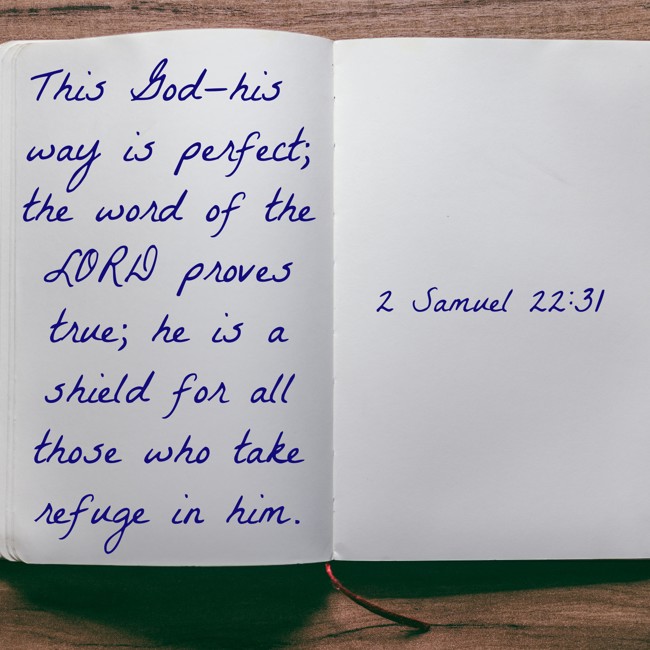 This God—his
way is perfect;
the word of the
LORD proves
true; he is a
shield for all
those who take
refuge in him.
2 Samuel 22:31